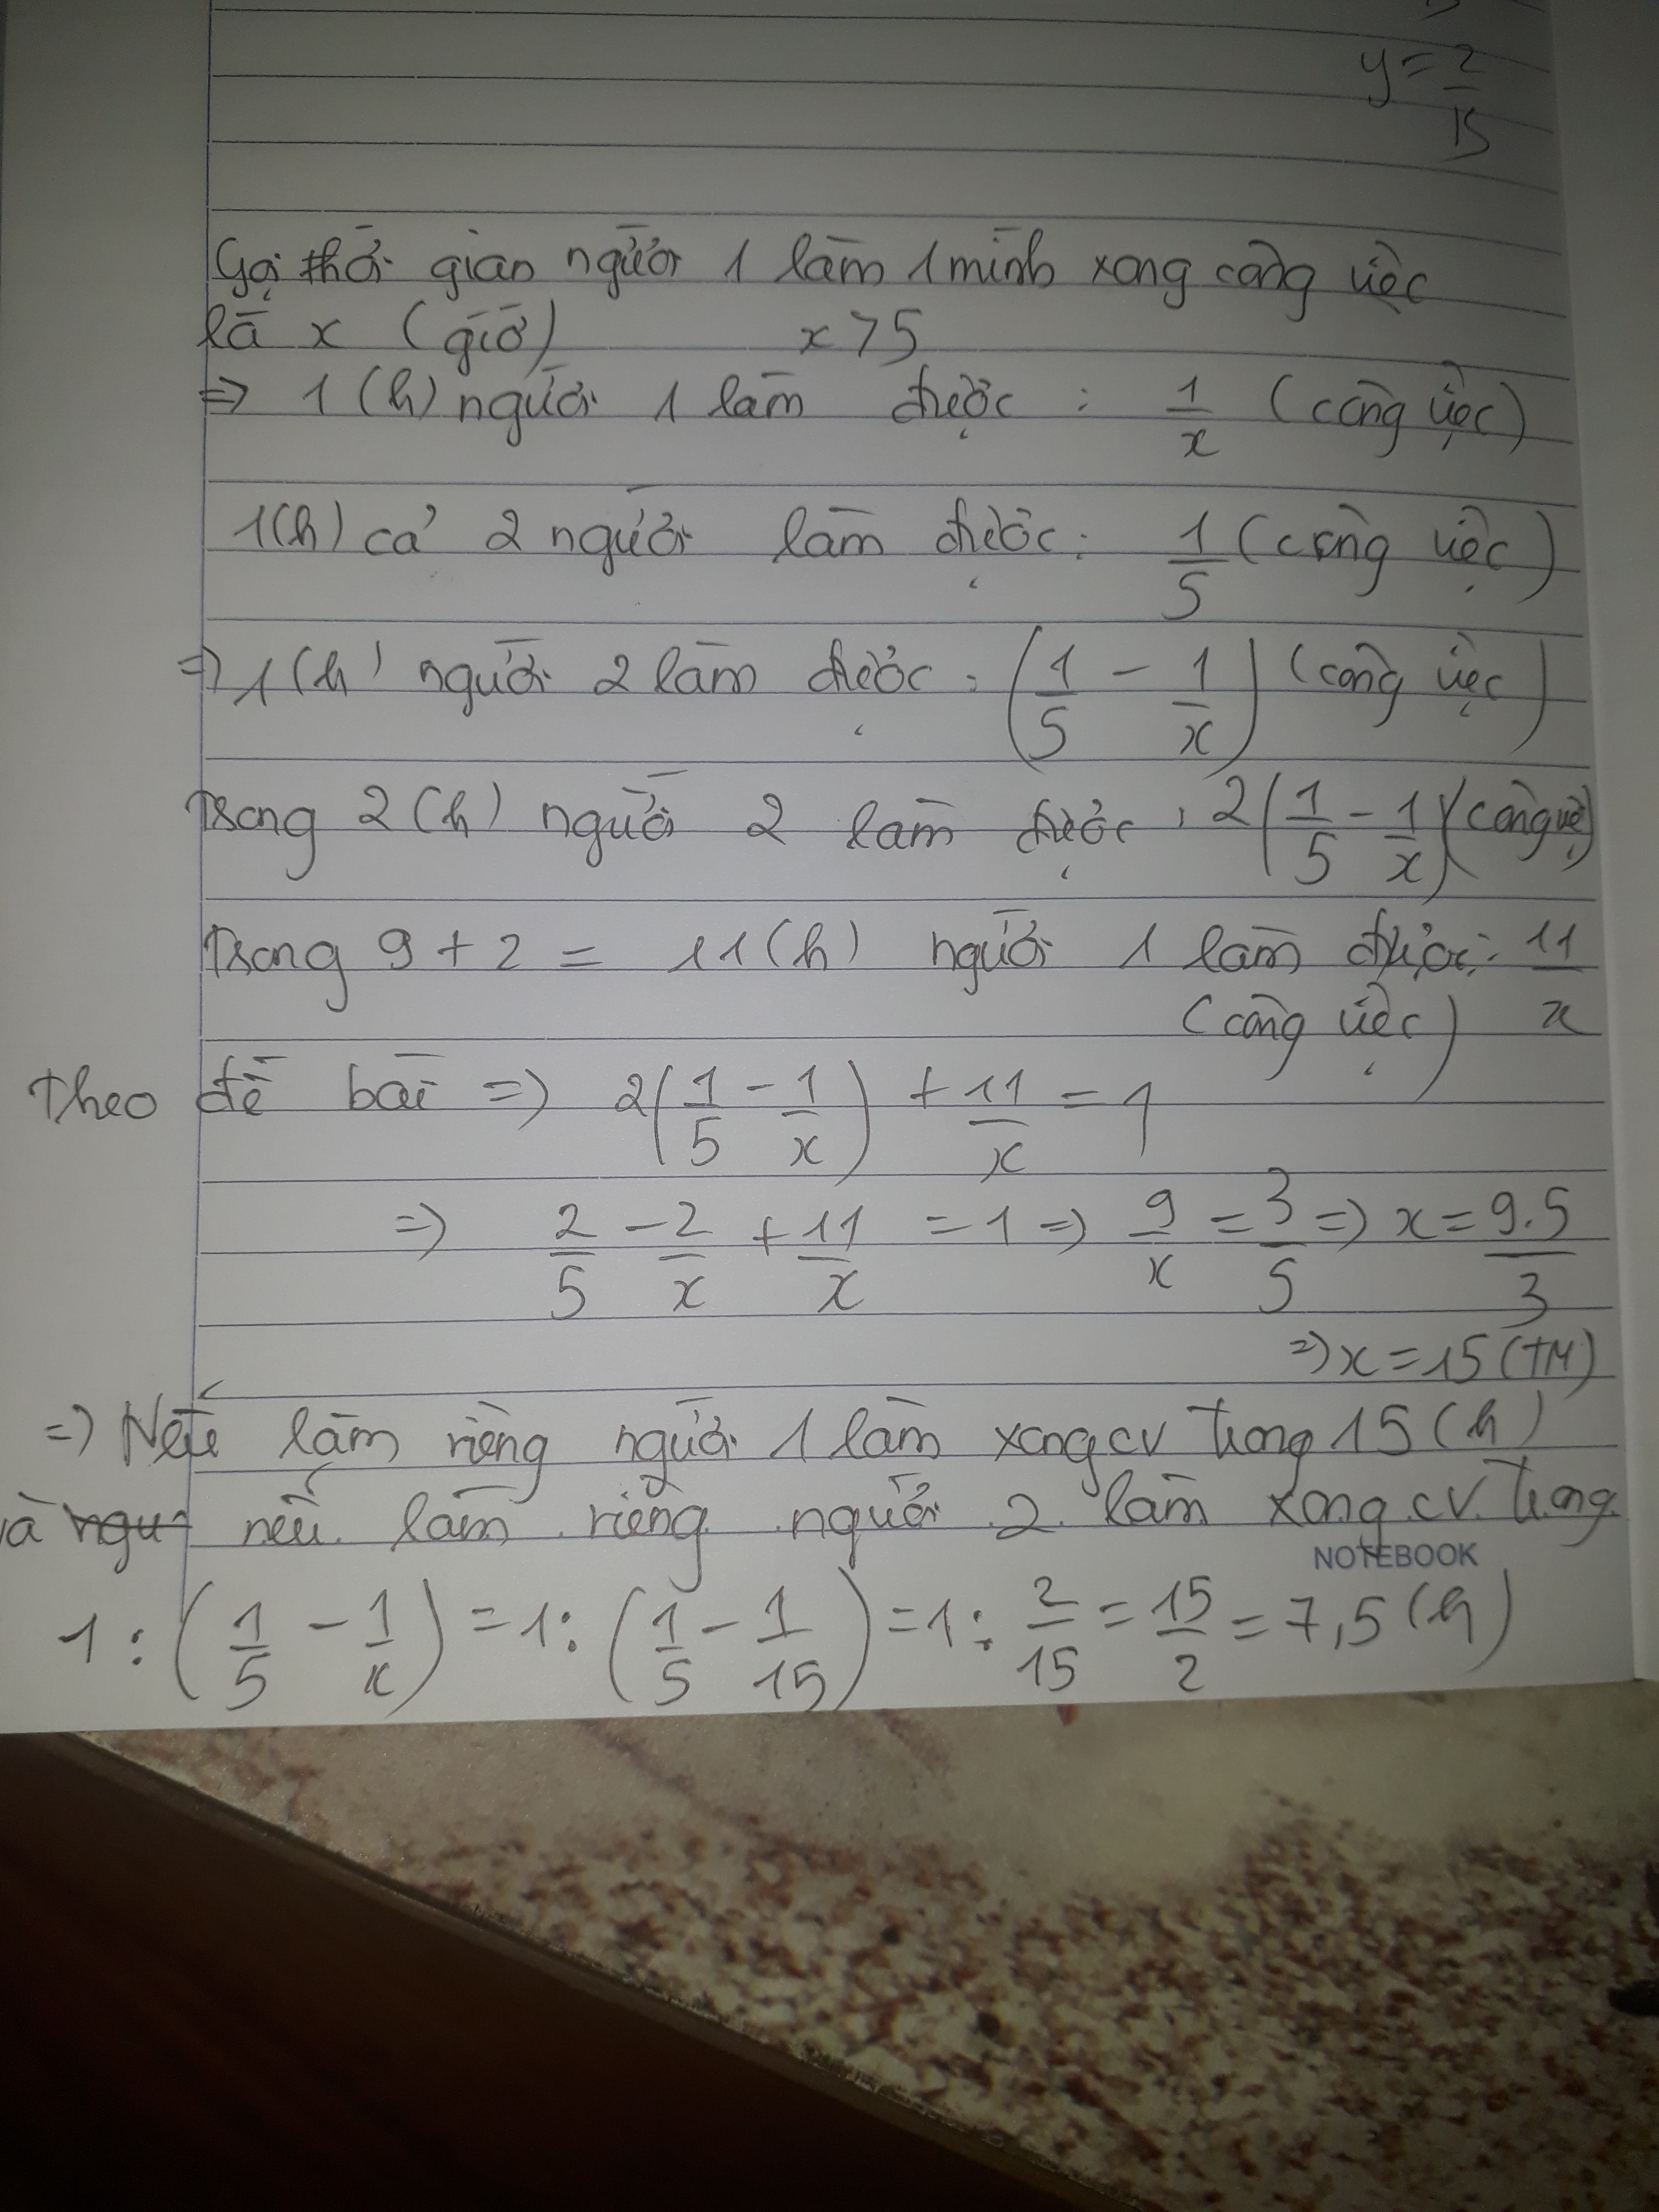 y = 2/15
Gọi thời gian người 1 làm 1 mình xong công việc
là x (giờ) x > 5
=> 1 (h) người 1 làm được : 1/x (công việc)
1(h) cả 2 người làm được : 1/5 (công việc)
=> 1(h) người 2 làm được : (1/5 - 1/x) (công việc)
Trong 2 (h) người 2 làm được : 2(1/5 - 1/x) (công việc)
Trong 9 + 2 = 11 (h) người 1 làm được : 11/x
(công việc)
Theo đề bài => 2(1/5 - 1/x) + 11/x = 1
=> 2/5 - 2/x + 11/x = 1 => 9/x = 3/5 => x = 9.5/3
=> x = 15 (TM)
=> Nếu làm riêng người 1 làm xong cv trong 15 (h)
và nếu làm riêng người 2 làm xong cv trong
NOTEBOOK
1 : (1/5 - 1/x) = 1 : (1/5 - 1/15) = 1 : 2/15 = 15/2 = 7,5 (h)